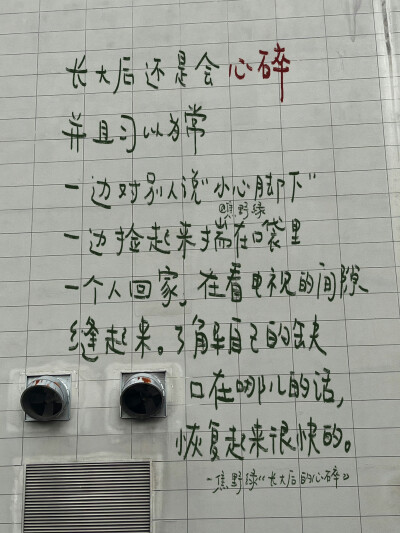 长大后还是会心碎
并且习以为常
一边对别人说“小心脚下”
焦野绿
一边捡起来揣在口袋里
一个人回家，在看电视的间隙
缝起来。了解自己的缺
口在哪儿的话，
恢复起来很快的。
-焦野绿《长大后的心碎》